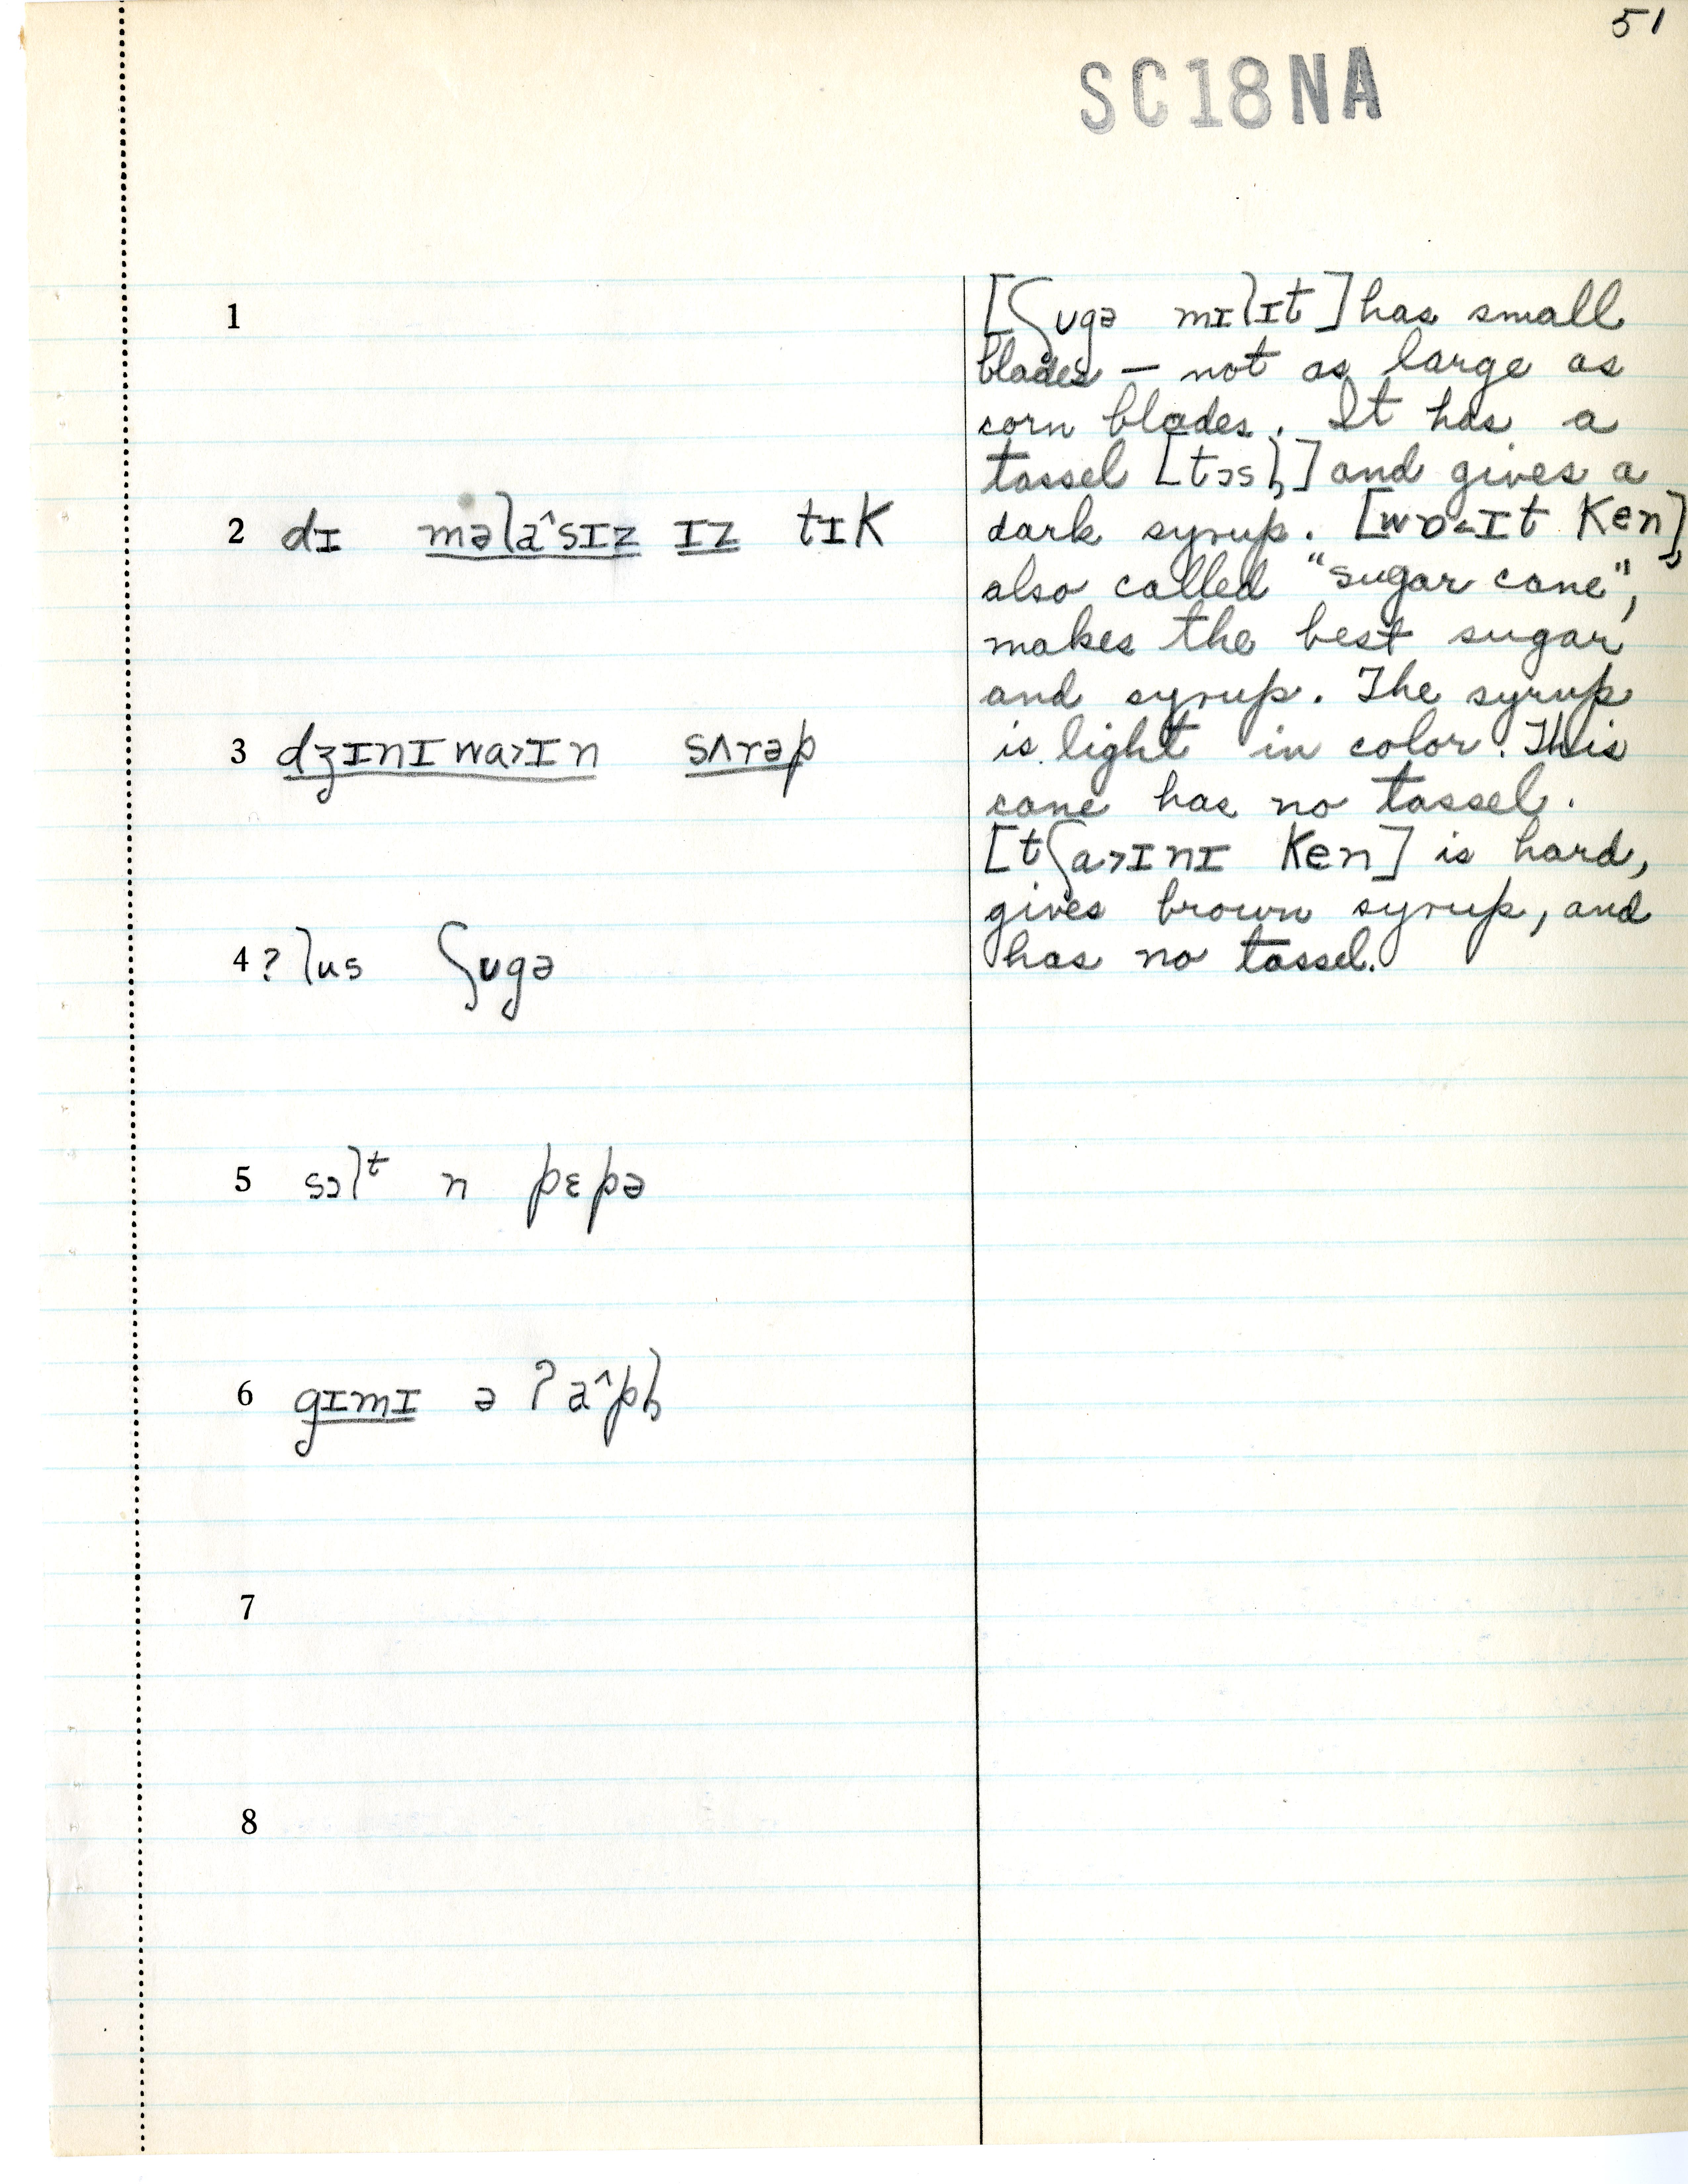 51
SC18NA
1
2 dɪ məlaˆsɪz ɪz tɪk
3 dʒɪnɪwa˃ɪn sʌrəp
4 ? lus ʃʊgə
5 sɔlᵗ n pɛpə
6 gɪmɪ ə ʔaˆpl̩
7
8
[ʃʊgə mɪlɪt] has small
blades — not as large as
corn blades. It has a
tassel [tɔsl̩] and gives a
dark syrup. [wɒ˂ɪt ken],
also called "sugar cane",
makes the best sugar
and syrup. The syrup
is light in color. This
cane has no tassel.
[tʃa˃ɪnɪ ken] is hard,
gives brown syrup, and
has no tassel.